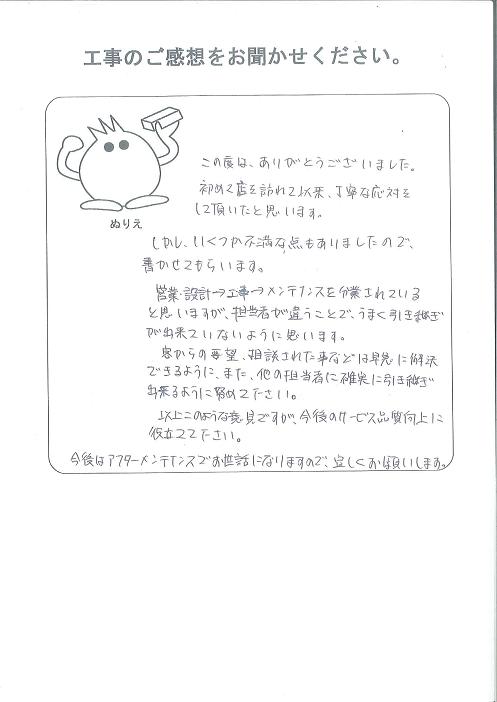 工事のご感想をお聞かせください。
ぬりえ
この度は、ありがとうございました。
初めて店を訪れて以来、丁寧な応対を
して頂いたと思います。
しかし、いくつか不満な点もありましたので、
書かせてもらいます。
営業・設計→工事→メンテナンスを分業されている
と思いますが、担当者が違うことで、うまく引き継ぎ
が出来ていないように思います。
客からの要望、相談された事などは早急に解決
できるように、また、他の担当者に確実に引き継ぎ
出来るように努めて下さい。
以上このような意見ですが、今後のサービス品質向上に
役立てて下さい。
今後はアフターメンテナンスでお世話になりますので、宜しくお願いします。